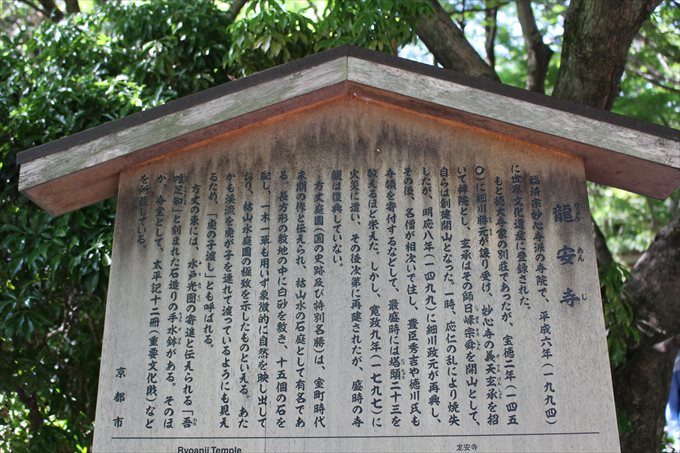 龍安寺
りょうあんじ
臨済宗妙心寺派の寺院で、平成六年(一九九四)
に世界文化遺産に登録された。
もと徳大寺家の別荘であったが、宝徳二年(一四五
〇)に細川勝元が譲り受け、妙心寺の義天玄承を招
いて禅院とし、玄承はその師日峰宗舜を開山として、
自らは創建開山となった。一時、応仁の乱により焼失
したが、明応八年(一四九九)に細川政元が再興し、
その後、名僧が相次いで住し、豊臣秀吉や徳川氏も
寺領を寄付するなどして、最盛時には塔頭二十三を
数えるほど栄えた。しかし、寛政九年(一七九七)に
火災に遭い、その後次第に再建されたが、盛時の寺
観は復興していない。
方丈庭園(国の史跡及び特別名勝)は、室町時代
末期の作と伝えられ、枯山水の石庭として有名であ
る。長方形の敷地の中に白砂を敷き、十五個の石を
配し、一木一草も用いず象徴的に自然を映し出して
おり、枯山水庭園の極致を示したものといえる。あた
かも渓流を虎が子を連れて渡っているようにも見え
るため、「虎の子渡し」とも呼ばれる。
方丈の裏には、水戸光圀の寄進と伝えられる「吾
唯足知」と刻まれた石造りの手水鉢がある。そのほ
か、寺宝として、太平記十二冊(重要文化財)など
を所蔵している。
京都市
Ryoanji Temple
龙安寺